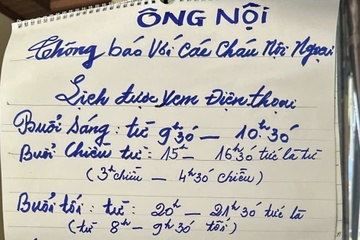 ÔNG NỘI
Thông báo Với Các Cháu Nội Ngoại
Lịch được xem Điện thoại
Buổi Sáng: từ 9h30' — 10h30'
Buổi Chiều từ: 15h — 16h30 tức là từ
(3h chiều — 4h30 chiều)
Buổi tối: từ: 20h — 21h30 tức là
(từ 8h — 9h30 tối)